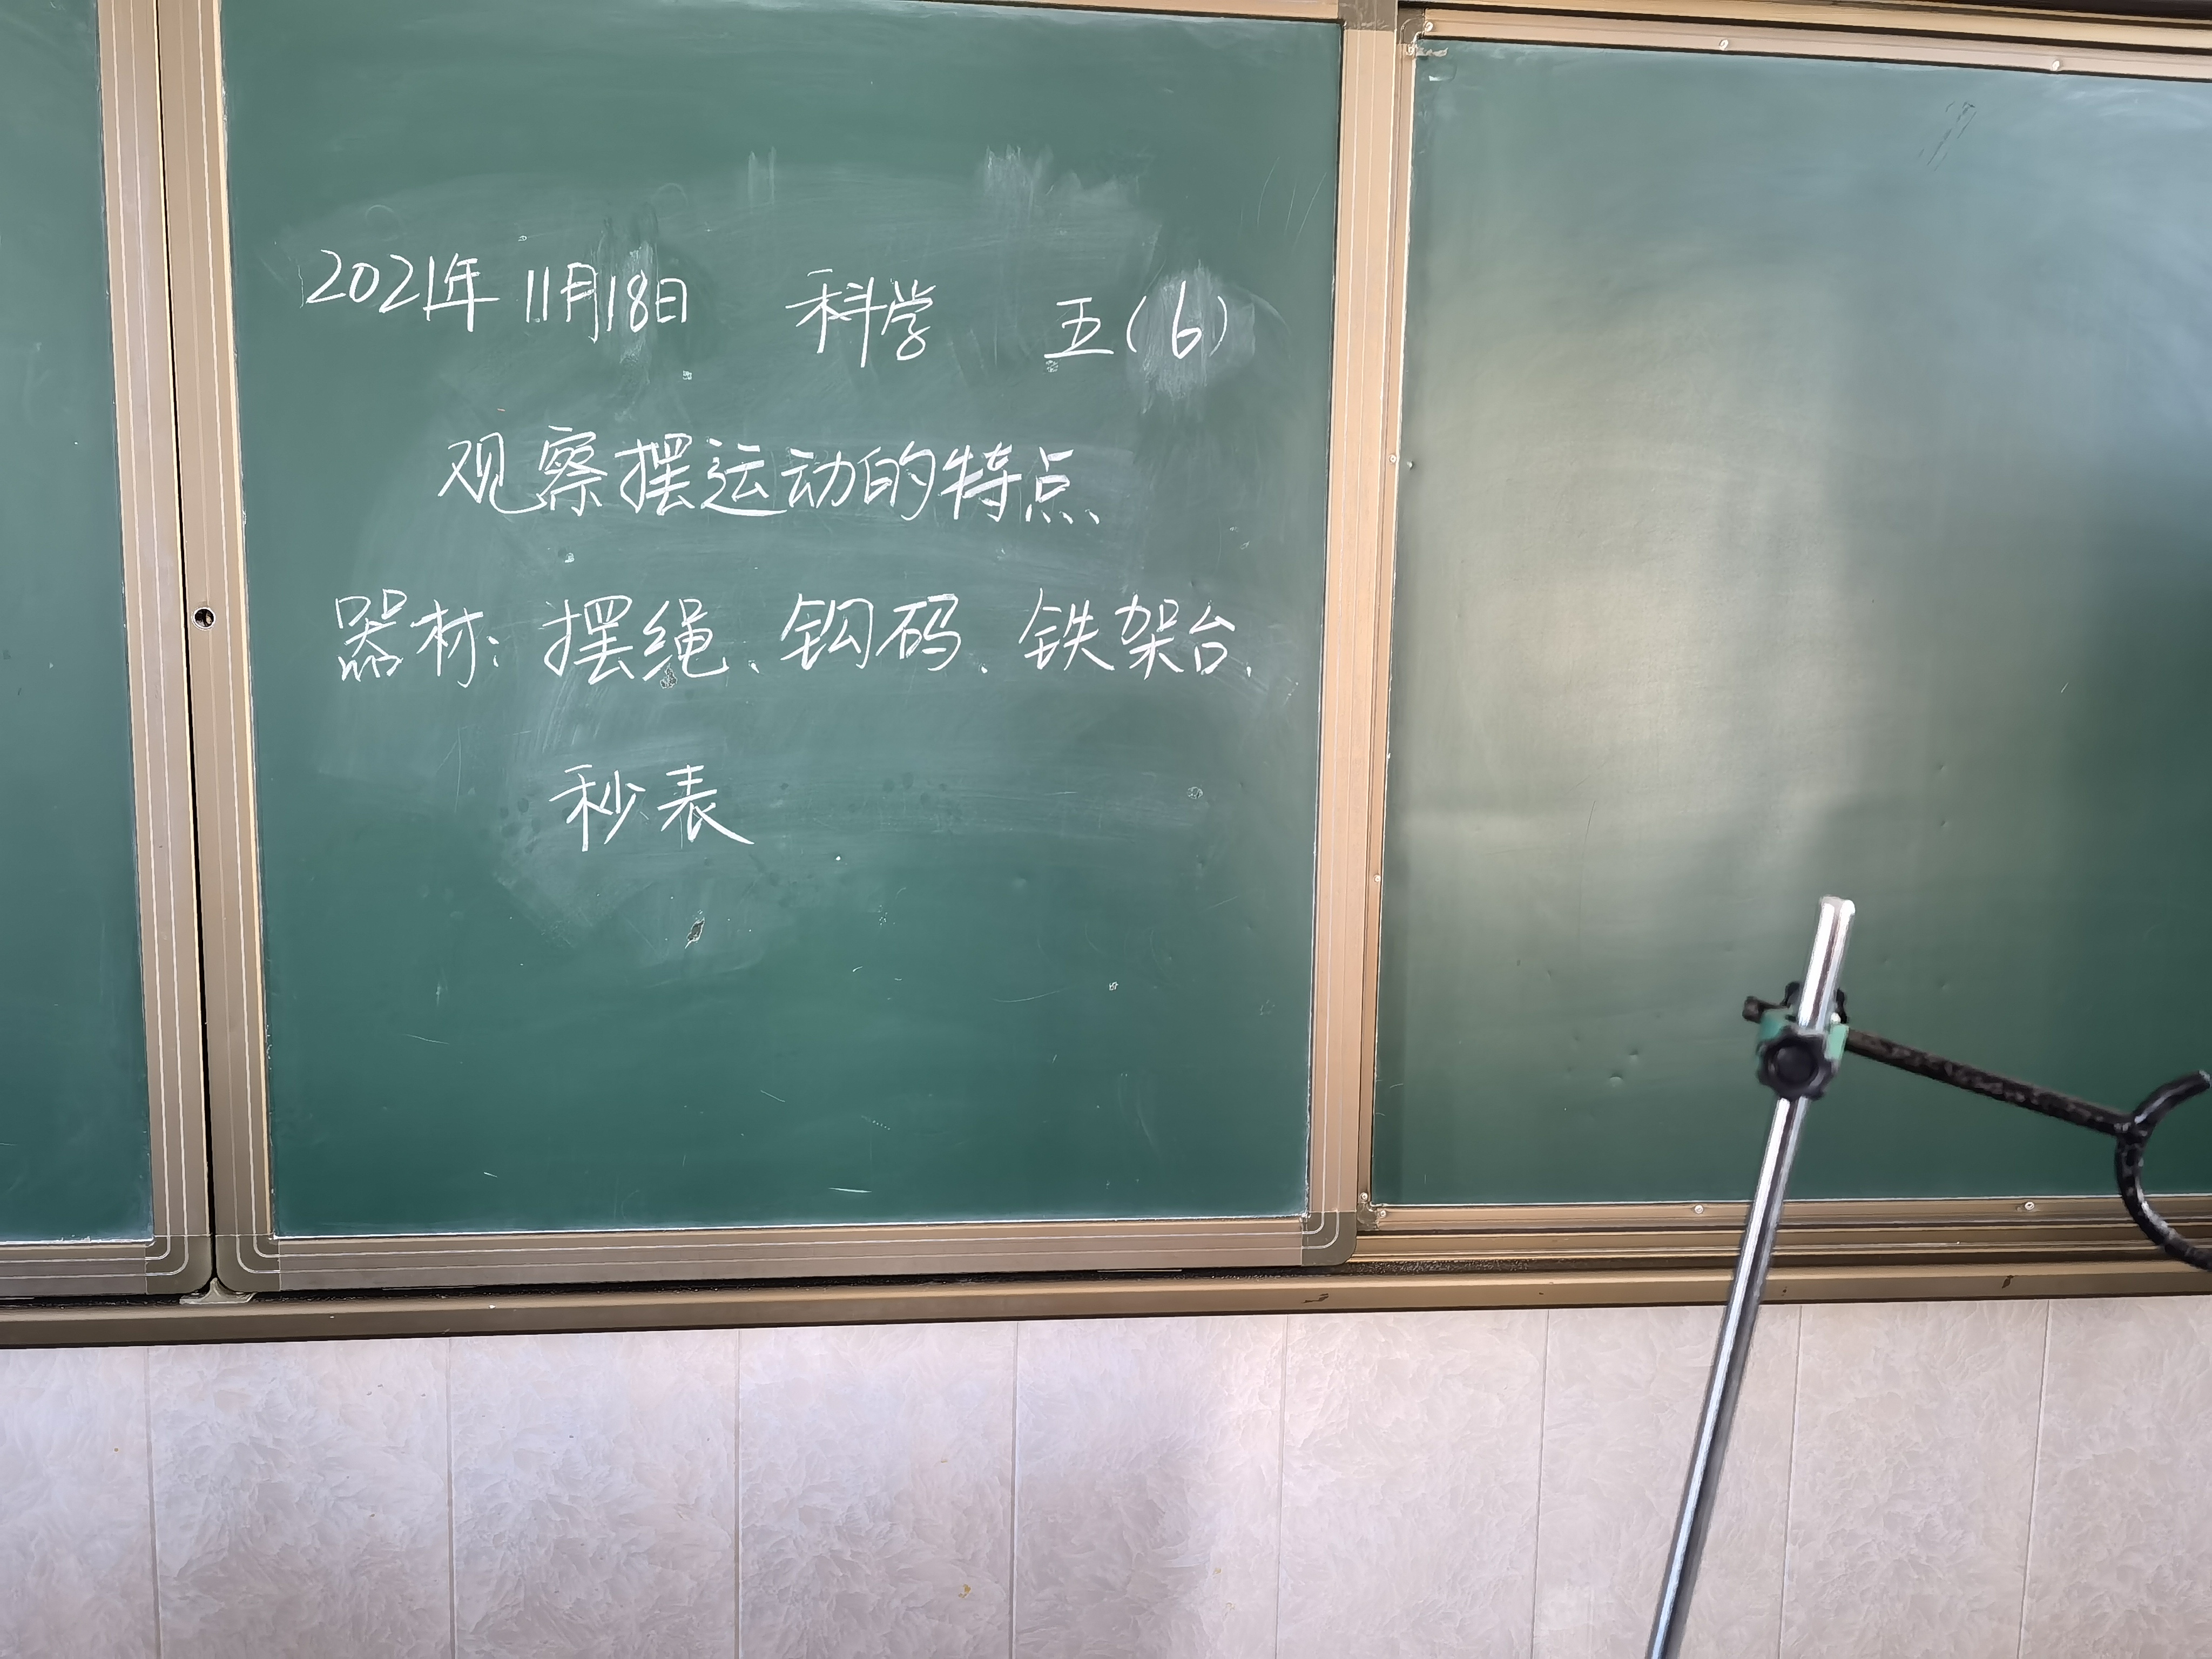 2021年 11月18日 科学 五(6)
观察摆运动的特点
器材：摆绳、钩码、铁架台、
秒表